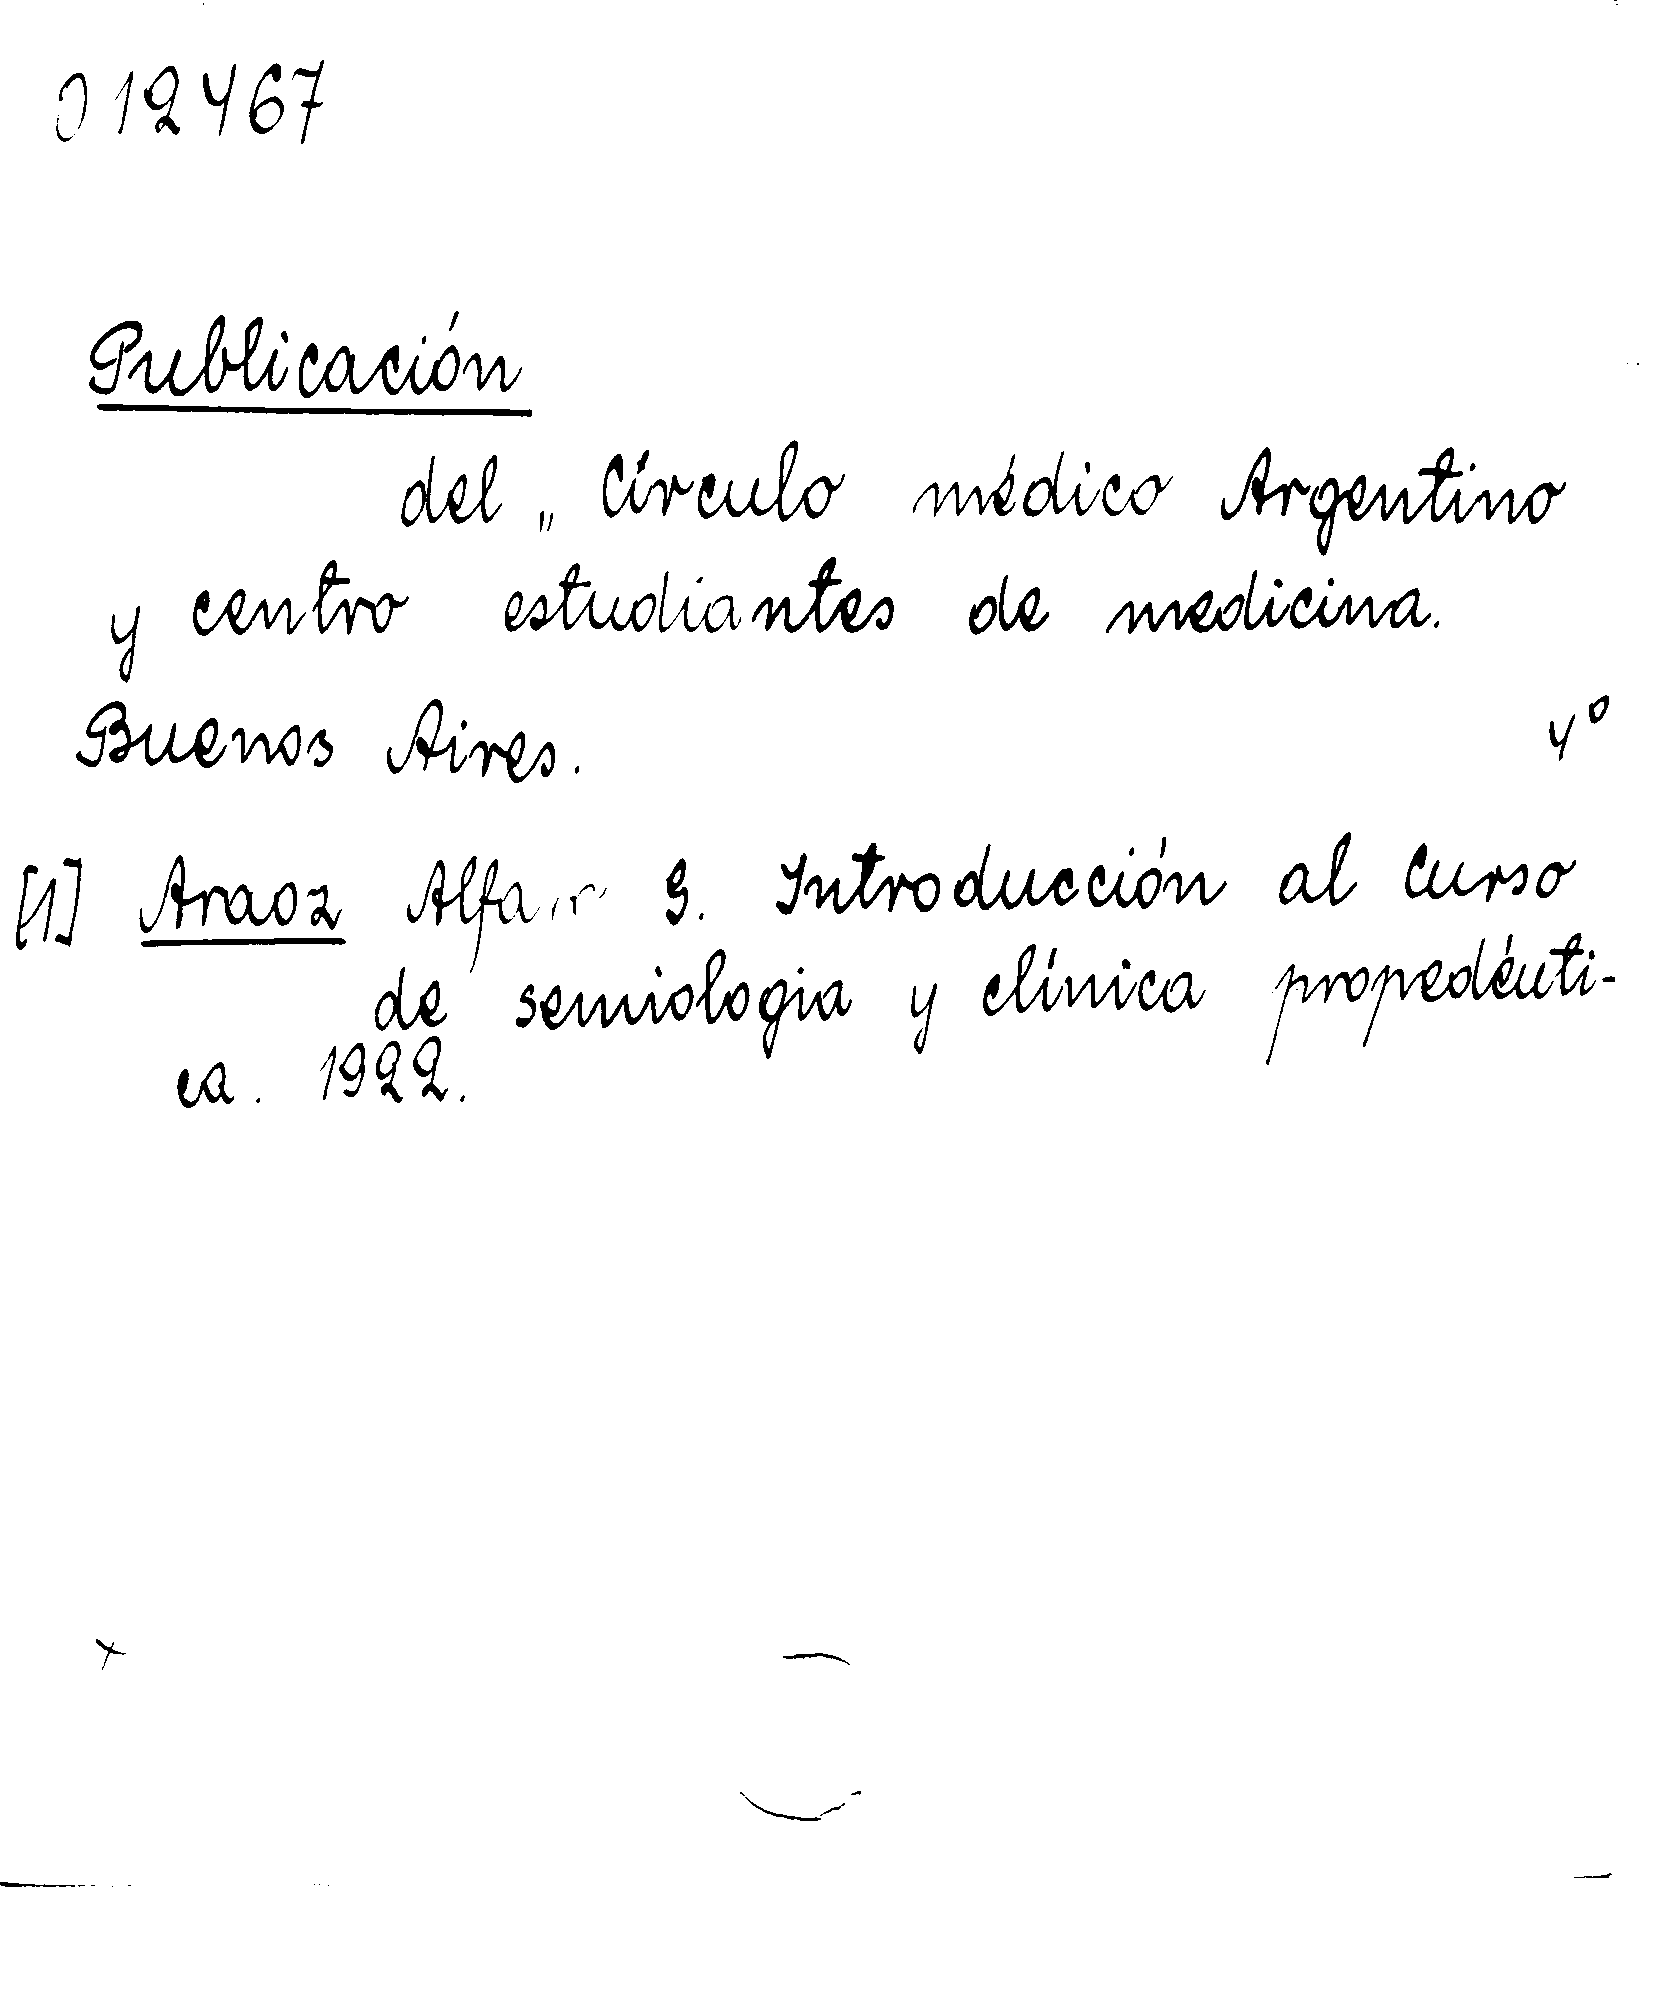 012467
Publicación
del „ Círculo médico Argentino
y centro estudiantes de medicina.
Buenos Aires. 4°
[1] Araoz G. Introducción al Curso
de semiologia y clínica propedéuti-
ca. 1922.